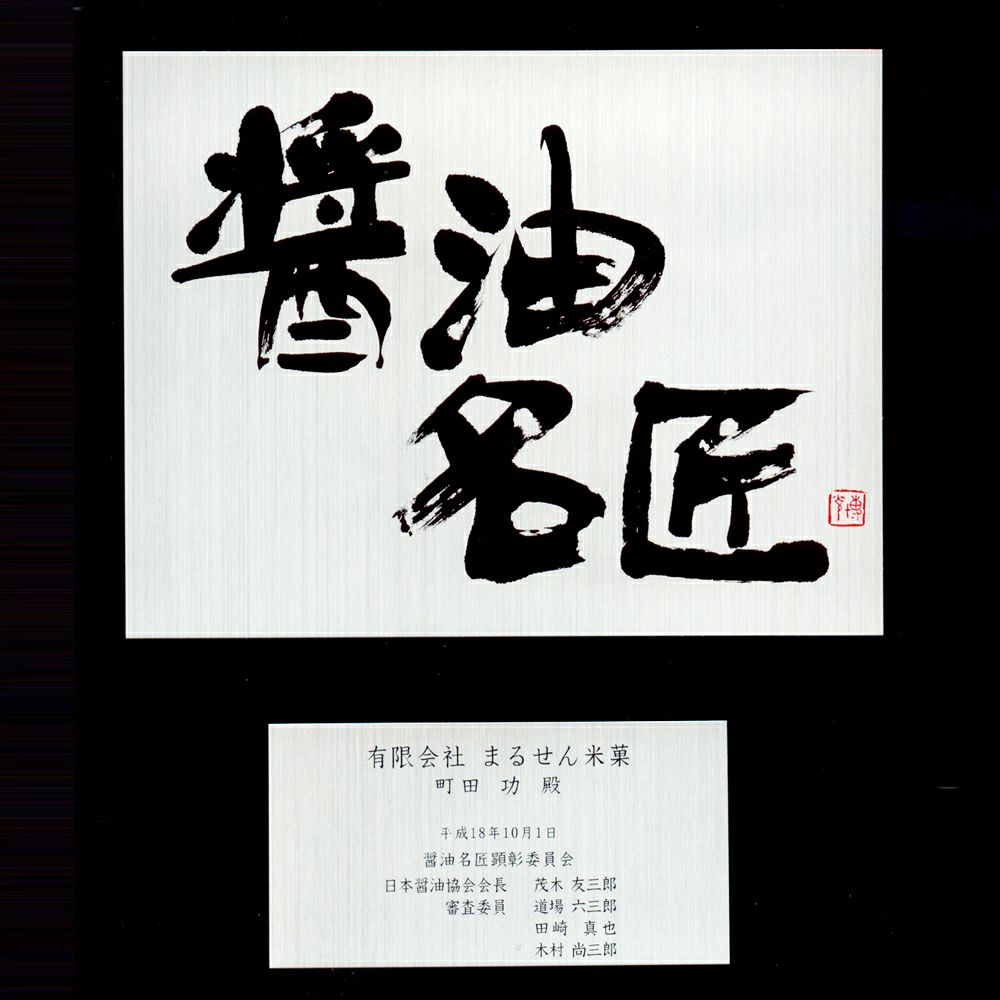 醤油
名匠
博
有限会社 まるせん米菓
町田 功 殿
平成18年10月1日
醤油名匠顕彰委員会
日本醤油協会会長 茂木 友三郎
審査委員 道場 六三郎
田崎 真也
木村 尚三郎